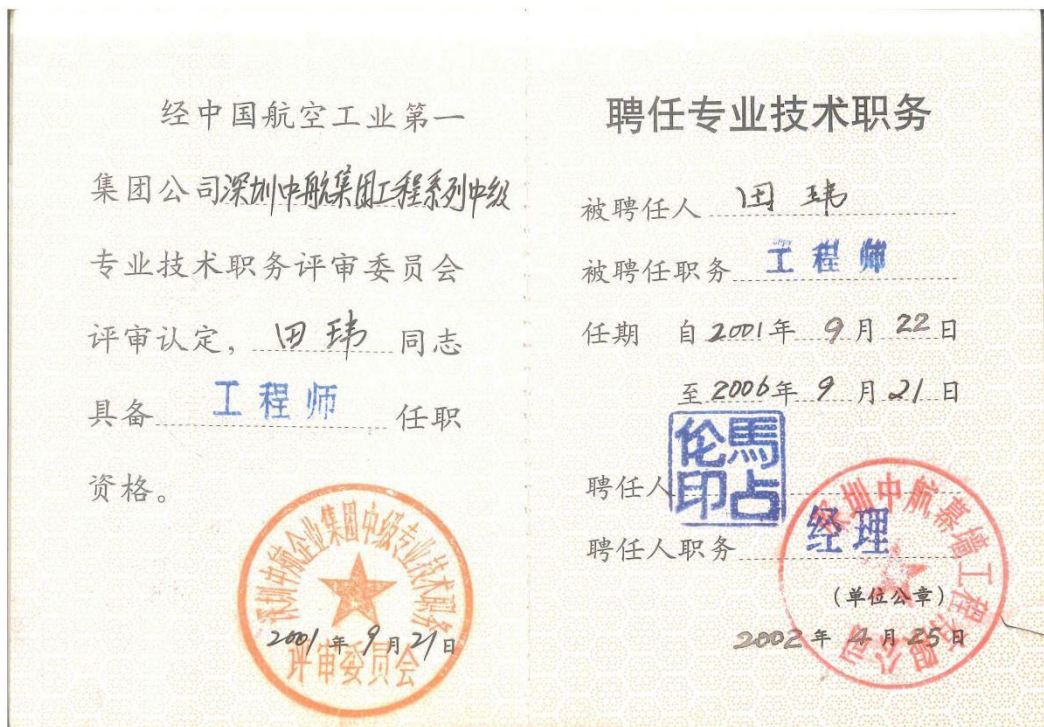 经中国航空工业第一
集团公司深圳中航集团工程系列中级
专业技术职务评审委员会
评审认定，田玮同志
具备工程师任职
资格。
深圳中航企业集团中级专业技术职务
评审委员会
2001年9月21日
聘任专业技术职务
被聘任人 田玮
被聘任职务 工程师
任期 自2001年9月22日
至2006年9月21日
聘任人 馬占伦印
聘任人职务 经理
深圳中航幕墙工程有限公司
（单位公章）
2002年4月25日